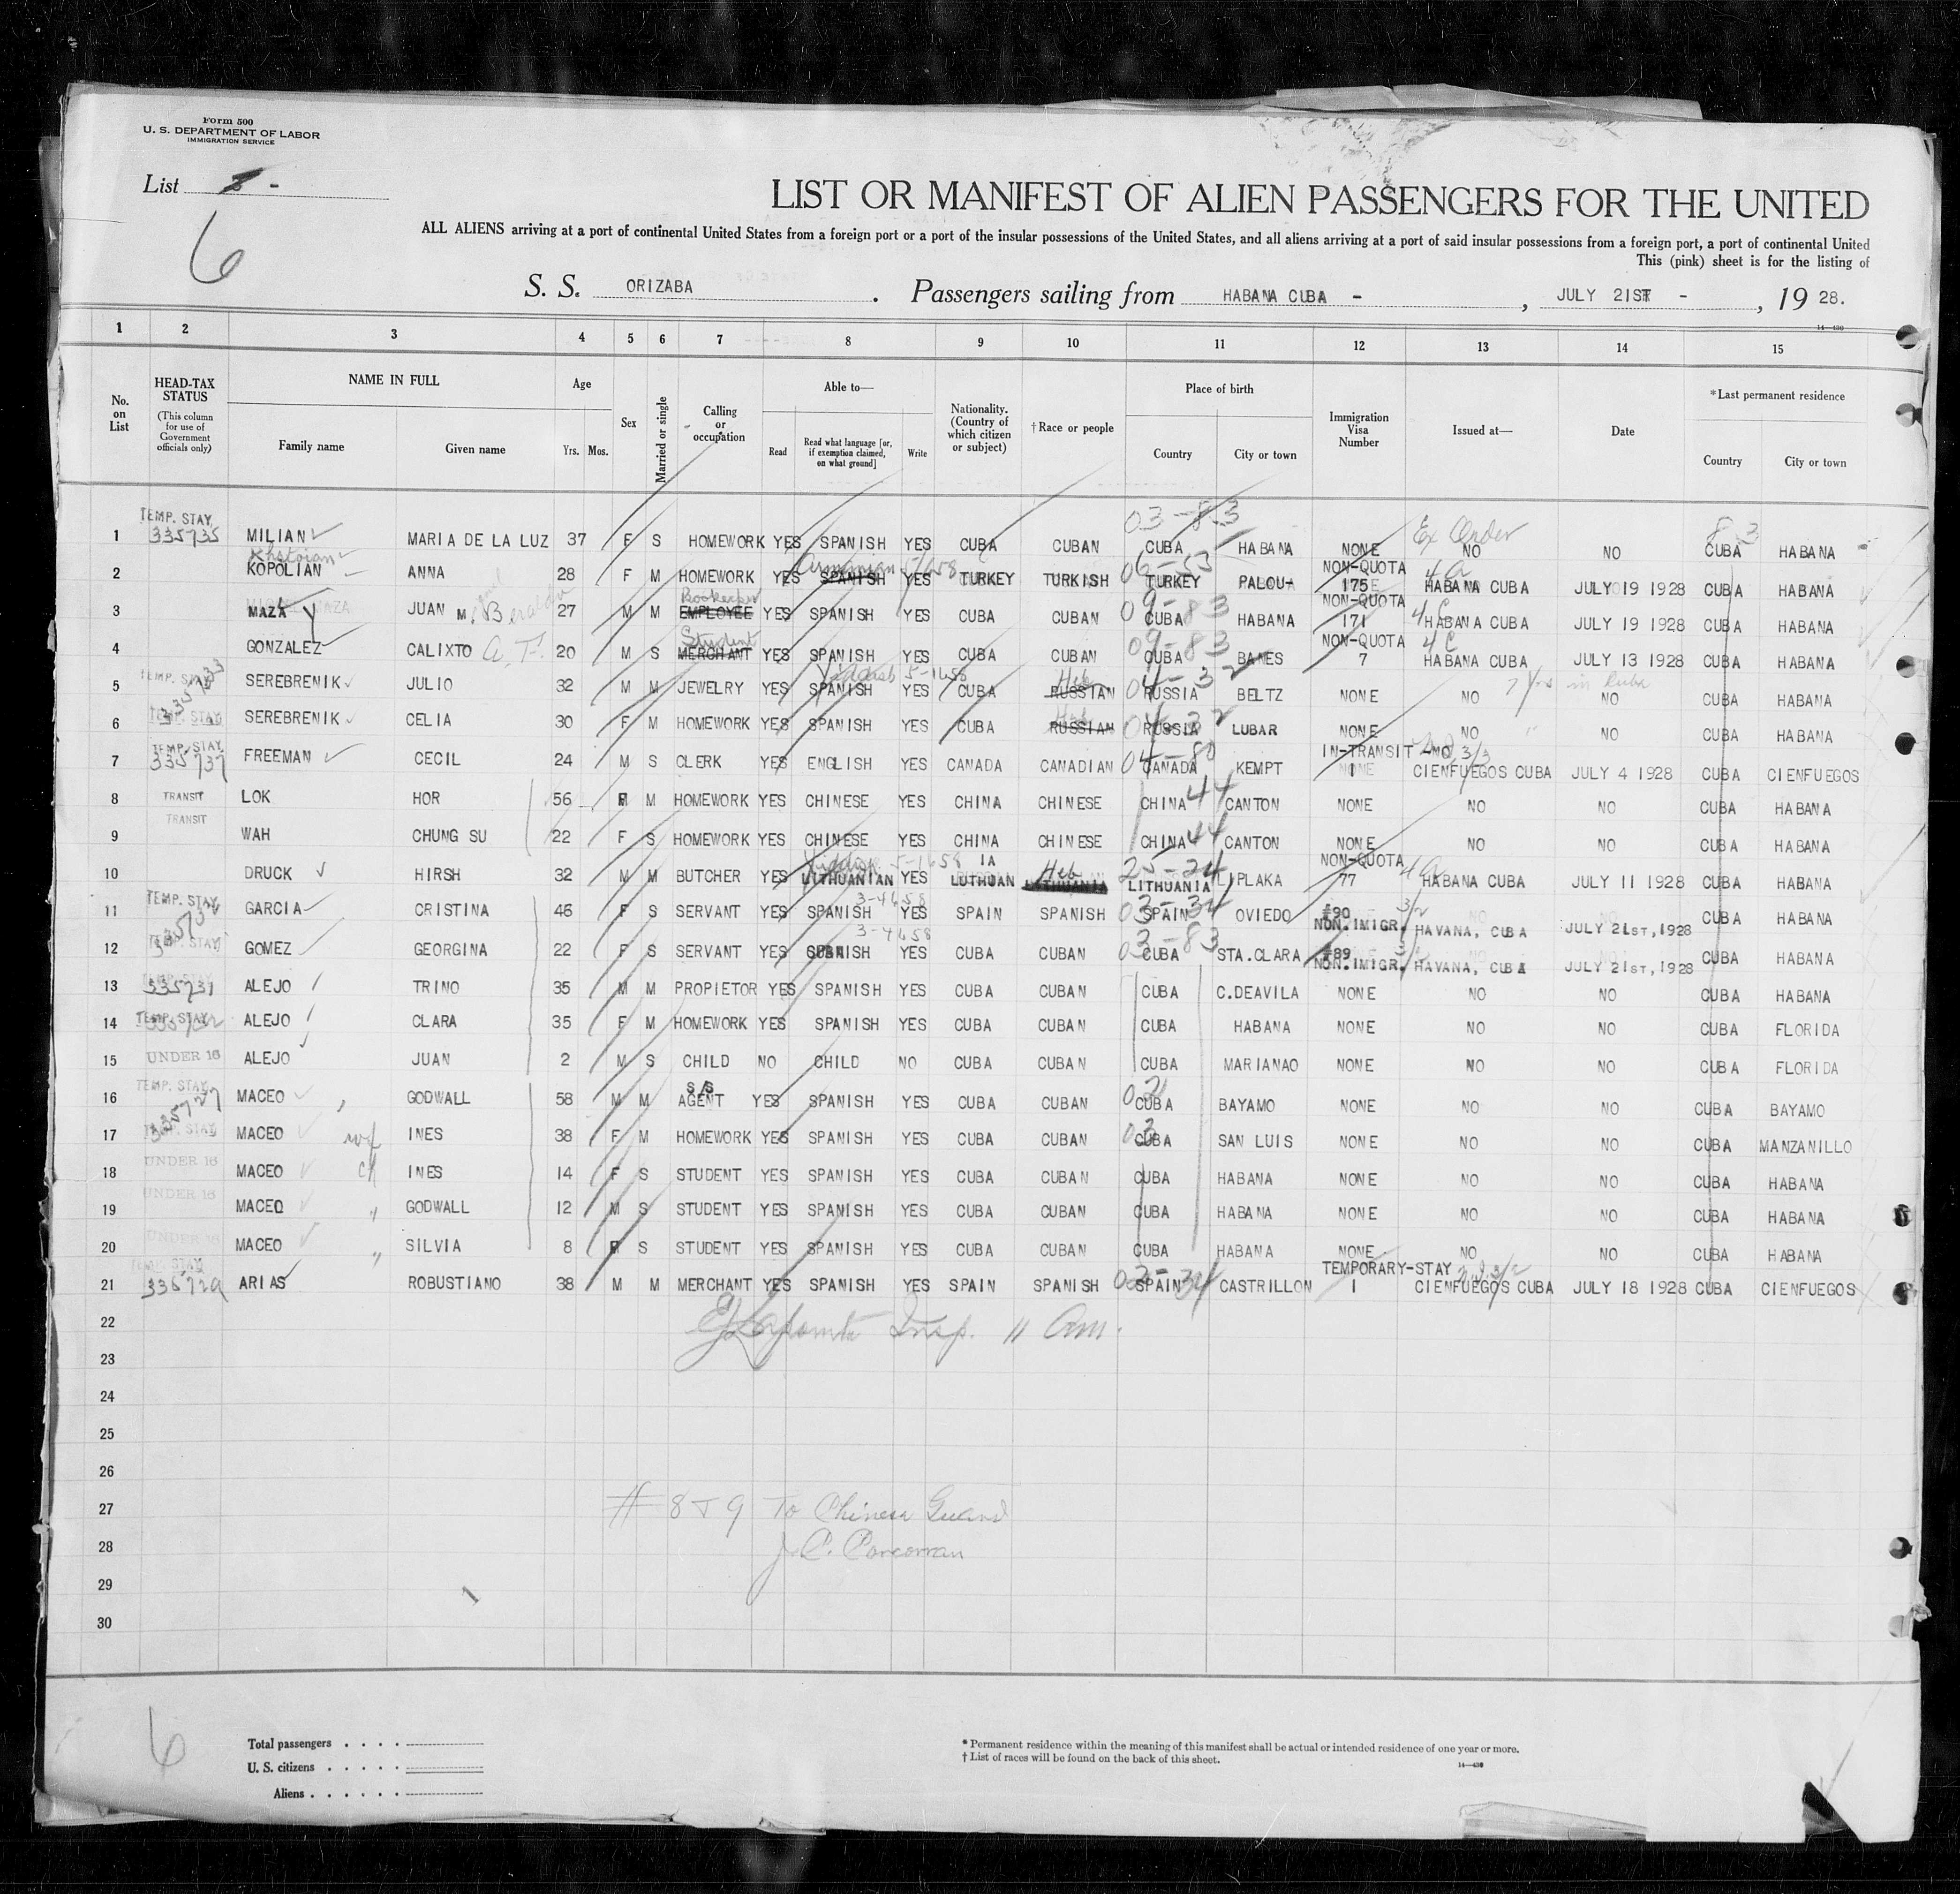 Form 500
U. S. DEPARTMENT OF LABOR
IMMIGRATION SERVICE
List -
6
LIST OR MANIFEST OF ALIEN PASSENGERS FOR THE UNITED
ALL ALIENS arriving at a port of continental United States from a foreign port or a port of the insular possessions of the United States, and all aliens arriving at a port of said insular possessions from a foreign port, a port of continental United
This (pink) sheet is for the listing of
S. S. ORIZABA . Passengers sailing from HABANA CUBA - , JULY 21ST - , 19 28.
14—430
1 2 3 4 5 6 7 8 9 10 11 12 13 14 15
No. on List
HEAD-TAX STATUS (This column for use of Government officials only)
NAME IN FULL
Family name Given name
Age
Yrs. Mos.
Sex
Married or single
Calling or occupation
Able to—
Read Read what language [or, if exemption claimed, on what ground] Write
Nationality. (Country of which citizen or subject)
†Race or people
Place of birth
Country City or town
Immigration Visa Number
Issued at—
Date
*Last permanent residence
Country City or town
03-83 Ex Order 83
1 TEMP. STAY 335735 MILIAN MARIA DE LA LUZ 37 F S HOMEWORK YES SPANISH YES CUBA CUBAN CUBA HABANA NONE NO NO CUBA HABANA
Armenian 06-53 NON-QUOTA 4a
2 KOPOLIAN ANNA 28 F M HOMEWORK YES SPANISH YES TURKEY TURKISH TURKEY PALOU- 175 HABANA CUBA JULY 19 1928 CUBA HABANA
Bookeeper 09-83 NON-QUOTA 4C
3 MAZA JUAN M. 27 M M EMPLOYEE YES SPANISH YES CUBA CUBAN CUBA HABANA 171 HABANA CUBA JULY 19 1928 CUBA HABANA
Student 09-83 NON-QUOTA 4C
4 GONZALEZ CALIXTO A. F. 20 M S MERCHANT YES SPANISH YES CUBA CUBAN CUBA BANES 7 HABANA CUBA JULY 13 1928 CUBA HABANA
Yiddish 5-1658 Heb 04-32 7 yrs in Cuba
5 TEMP. STAY SEREBRENIK JULIO 32 M M JEWELRY YES SPANISH YES CUBA RUSSIAN RUSSIA BELTZ NONE NO NO CUBA HABANA
Heb 04-32
6 TEMP. STAY SEREBRENIK CELIA 30 F M HOMEWORK YES SPANISH YES CUBA RUSSIAN RUSSIA LUBAR NONE NO NO CUBA HABANA
04-80 IN-TRANSIT -NO 3/3
7 TEMP. STAY 335737 FREEMAN CECIL 24 M S CLERK YES ENGLISH YES CANADA CANADIAN CANADA KEMPT 1 CIENFUEGOS CUBA JULY 4 1928 CUBA CIENFUEGOS
8 TRANSIT LOK HOR 56 M HOMEWORK YES CHINESE YES CHINA CHINESE CHINA 44 CANTON NONE NO NO CUBA HABANA
9 TRANSIT WAH CHUNG SU 22 F S HOMEWORK YES CHINESE YES CHINA CHINESE CHINA 44 CANTON NONE NO NO CUBA HABANA
Yiddish 5-1658 IA Heb 25-24 NON-QUOTA 4a
10 DRUCK HIRSH 32 M M BUTCHER YES LITHUANIAN YES LUTHUAN LITHUANIA LITHUANIA LIPLAKA 77 HABANA CUBA JULY 11 1928 CUBA HABANA
3-4658 3/2
11 TEMP. STAY GARCIA CRISTINA 46 F S SERVANT YES SPANISH YES SPAIN SPANISH 03-34 SPAIN OVIEDO #90 NON.IMIGR. HAVANA, CUBA JULY 21ST,1928 CUBA HABANA
3-4658
12 TEMP. STAY GOMEZ GEORGINA 22 F S SERVANT YES SPANISH YES CUBA CUBAN 03-83 CUBA STA.CLARA #89 NON.IMIGR. HAVANA, CUBA JULY 21ST,1928 CUBA HABANA
13 TEMP. STAY 335731 ALEJO TRINO 35 M M PROPIETOR YES SPANISH YES CUBA CUBAN CUBA C.DEAVILA NONE NO NO CUBA HABANA
14 TEMP. STAY ALEJO CLARA 35 F M HOMEWORK YES SPANISH YES CUBA CUBAN CUBA HABANA NONE NO NO CUBA FLORIDA
15 UNDER 16 ALEJO JUAN 2 M S CHILD NO CHILD NO CUBA CUBAN CUBA MARIANAO NONE NO NO CUBA FLORIDA
16 TEMP. STAY 335727 MACEO GODWALL 58 M M S/S AGENT YES SPANISH YES CUBA CUBAN 02 CUBA BAYAMO NONE NO NO CUBA BAYAMO
17 TEMP. STAY MACEO wif INES 38 F M HOMEWORK YES SPANISH YES CUBA CUBAN 03 CUBA SAN LUIS NONE NO NO CUBA MANZANILLO
18 UNDER 16 MACEO ch INES 14 F S STUDENT YES SPANISH YES CUBA CUBAN CUBA HABANA NONE NO NO CUBA HABANA
19 UNDER 16 MACEO " GODWALL 12 M S STUDENT YES SPANISH YES CUBA CUBAN CUBA HABANA NONE NO NO CUBA HABANA
20 UNDER 16 MACEO " SILVIA 8 F S STUDENT YES SPANISH YES CUBA CUBAN CUBA HABANA NONE NO NO CUBA HABANA
TEMPORARY-STAY
21 TEMP. STAY 335729 ARIAS ROBUSTIANO 38 M M MERCHANT YES SPANISH YES SPAIN SPANISH 02-34 SPAIN CASTRILLON 1 CIENFUEGOS CUBA JULY 18 1928 CUBA CIENFUEGOS
22 Insp. 11 Am.
23
24
25
26
27 # 8 & 9 To Chinese Guard
28 J. C. Corcorran
29
30
6
Total passengers
U. S. citizens
Aliens
* Permanent residence within the meaning of this manifest shall be actual or intended residence of one year or more.
† List of races will be found on the back of this sheet.
14—430